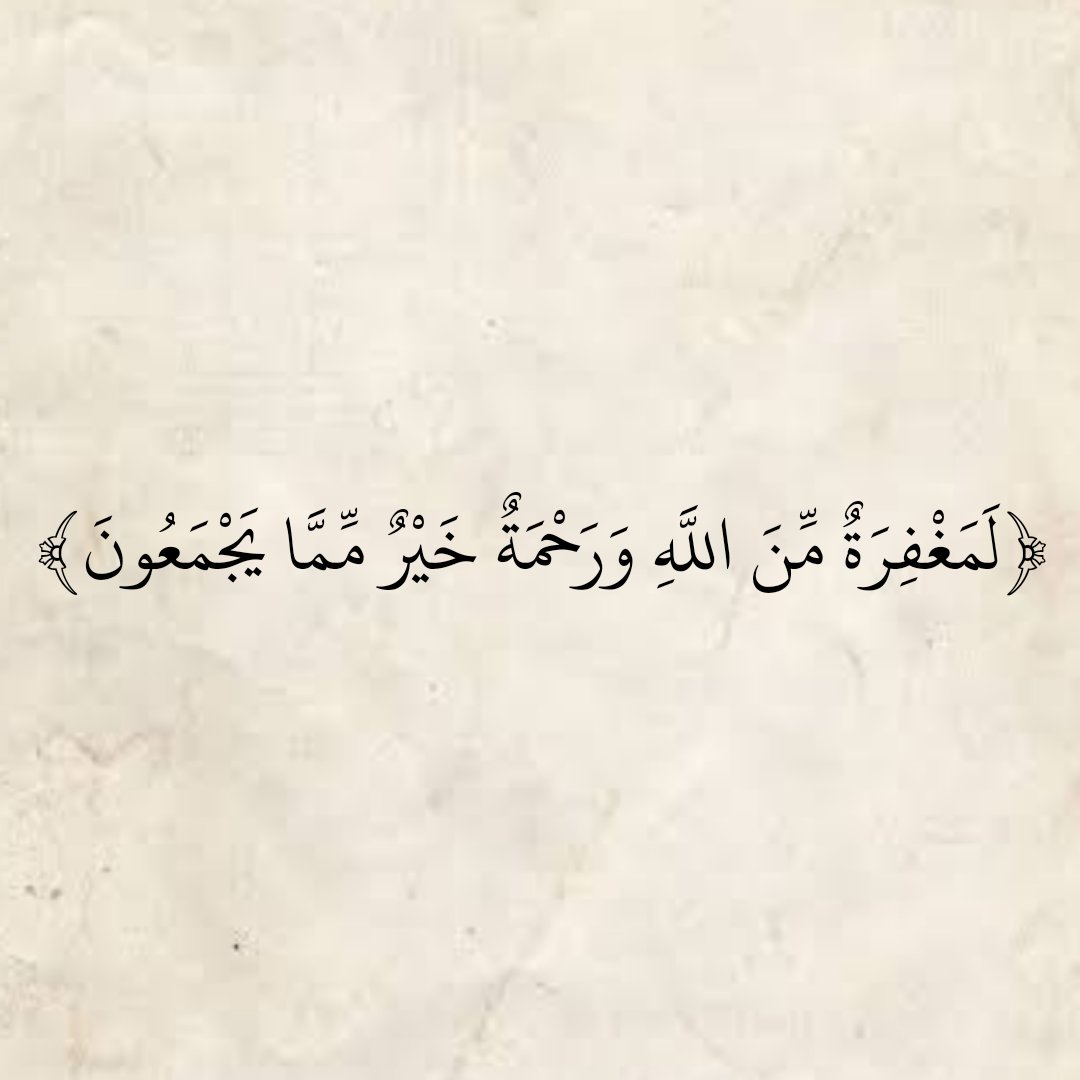 ﴿لَمَغْفِرَةٌ مِّنَ اللَّهِ وَرَحْمَةٌ خَيْرٌ مِّمَّا يَجْمَعُونَ﴾